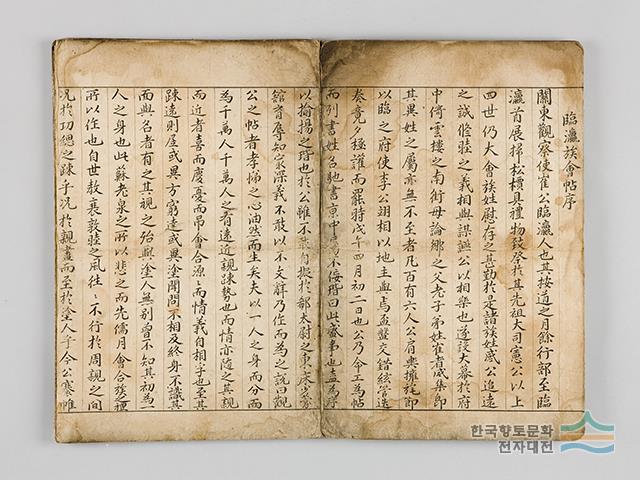 臨瀛族會帖序
關東觀察使崔公臨瀛人也其按道之月餘行部至臨
瀛首展掃松檟具禮物致祭於其先祖大司憲公以上
四世仍大會族姓慰存之甚勤於是諸族姓感公追遠
之誠惇睦之義相與謀讌公以相樂也遂設大幕於府
中倚雲樓之南衙毋論鄉之父老子弟姓崔者咸集即
其異姓之屬亦無不至者凡百有六人公肩輿擁旄節
以臨之府使李公翊相以地主與焉盃盤交錯絃管迭
奏竟夕極讙而罷時戊午四月初二日也公乃命工為帖
而列書姓名馳書京中 不佞 曰此盛事也盍為序
以揄揚之 也於公雖不 自擬於郗太尉之東床之
館者辱知家深義不敢以不文辭乃作而為之說曰觀
公之帖者孝悌之心油然而生矣夫以一人之身而分而
為千萬人千萬人之有遠近親踈勢也而情亦隨之其親
而近者喜而慶憂而吊會合源〻而情義自相孚也至其
踈遠則居或異方窮達或異塗聞問不相及終身不識其
面與名者有之其視之殆與塗人無別曾不知其初為一
人之身也此蘇老泉之所以悲之而先儒月會合族之禮
所以作也自世教衰敦睦之風往〻不行於周親之間
况於功緦之踈乎况於親盡而至於塗人乎今公褰帷
한국향토문화
전자대전